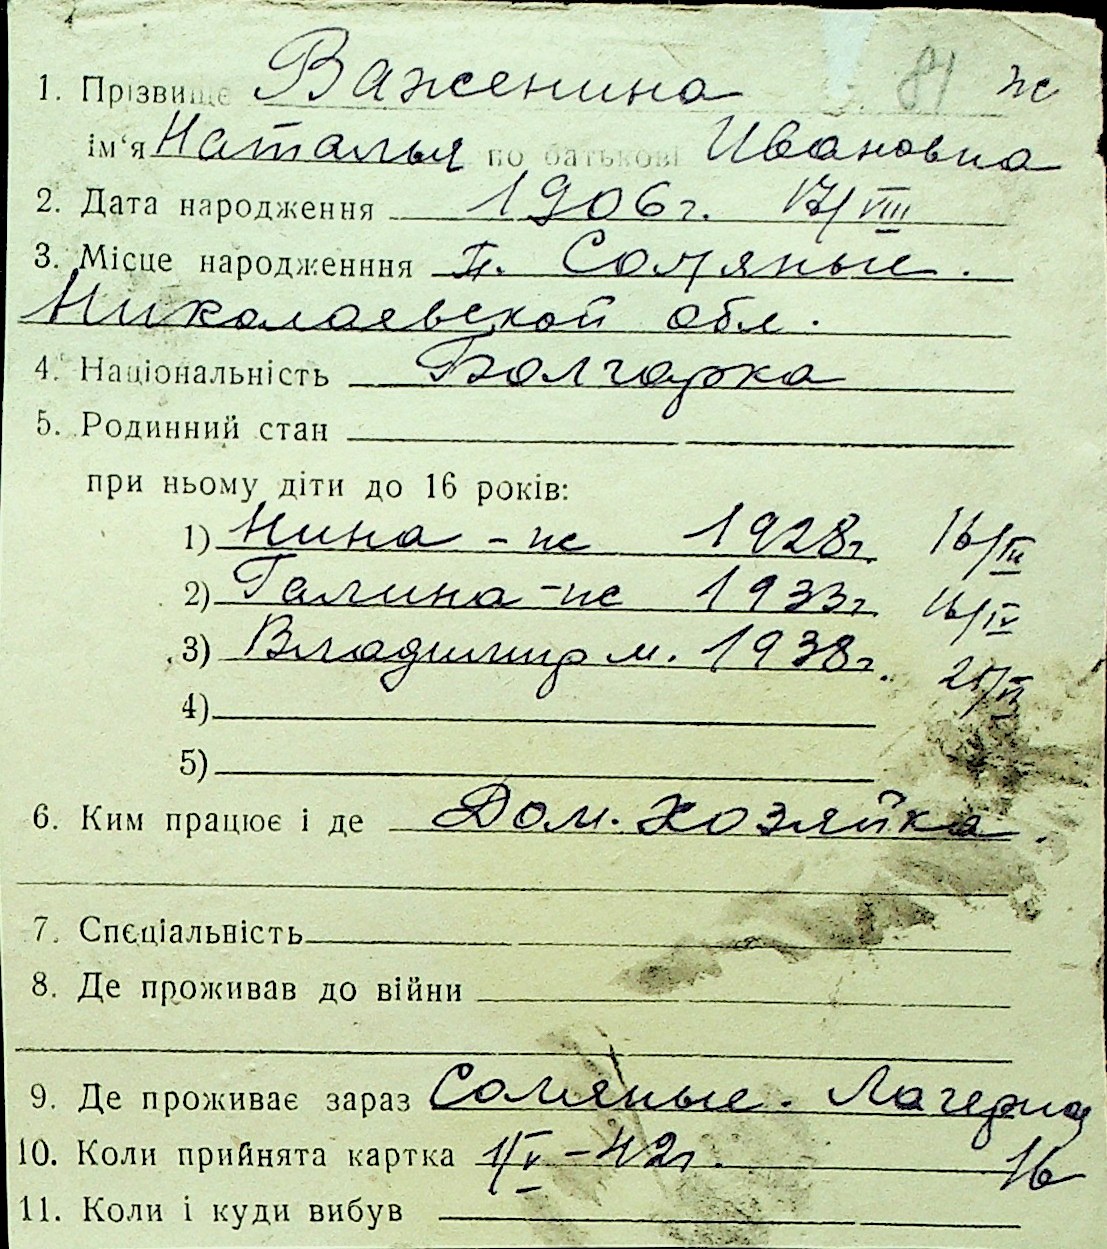 1. Прізвище Важенина 81 ж
ім'я Наталья по батькові Ивановна
2. Дата народження 1906 г. 17/VIII
3. Місце народженння п. Соляные.
Николаевской обл.
4. Національність Болгарка
5. Родинний стан
при ньому діти до 16 років:
1) Нина - ж 1928г. 16/III
2) Галина - ж 1933г 16/IV
3) Владимир м. 1938г.
4)
5)
6. Ким працює і де Дом. хозяйка.
7. Спєціальність
8. Де проживав до війни
9. Де проживає зараз Соляные. Лагерная
10. Коли прийнята картка 1/V - 42г. 16
11. Коли і куди вибув